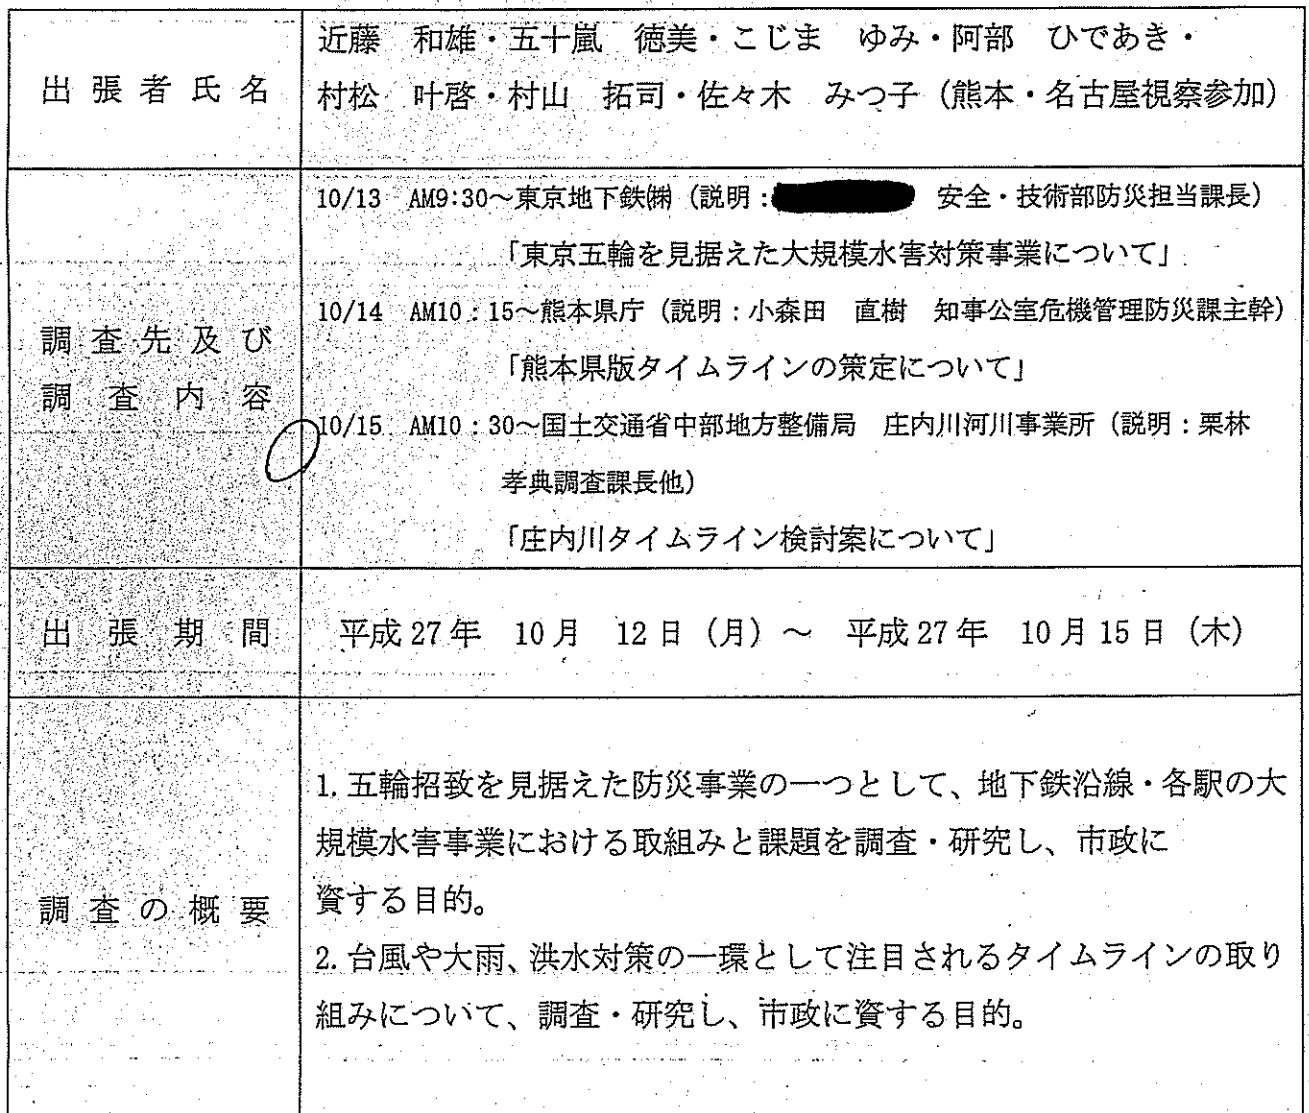 出張者氏名
近藤　和雄・五十嵐　徳美・こじま　ゆみ・阿部　ひであき・
村松　叶啓・村山　拓司・佐々木　みつ子（熊本・名古屋視察参加）
調査先及び
調査内容
10/13　AM9:30～東京地下鉄㈱（説明：　安全・技術部防災担当課長）
「東京五輪を見据えた大規模水害対策事業について」
10/14　AM10：15～熊本県庁（説明：小森田　直樹　知事公室危機管理防災課主幹）
「熊本県版タイムラインの策定について」
10/15　AM10：30～国土交通省中部地方整備局　庄内川河川事業所（説明：栗林
孝典調査課長他）
「庄内川タイムライン検討案について」
出張期間
平成27年　10月　12日（月）～　平成27年　10月15日（木）
調査の概要
1.五輪招致を見据えた防災事業の一つとして、地下鉄沿線・各駅の大
規模水害事業における取組みと課題を調査・研究し、市政に
資する目的。
2.台風や大雨、洪水対策の一環として注目されるタイムラインの取り
組みについて、調査・研究し、市政に資する目的。